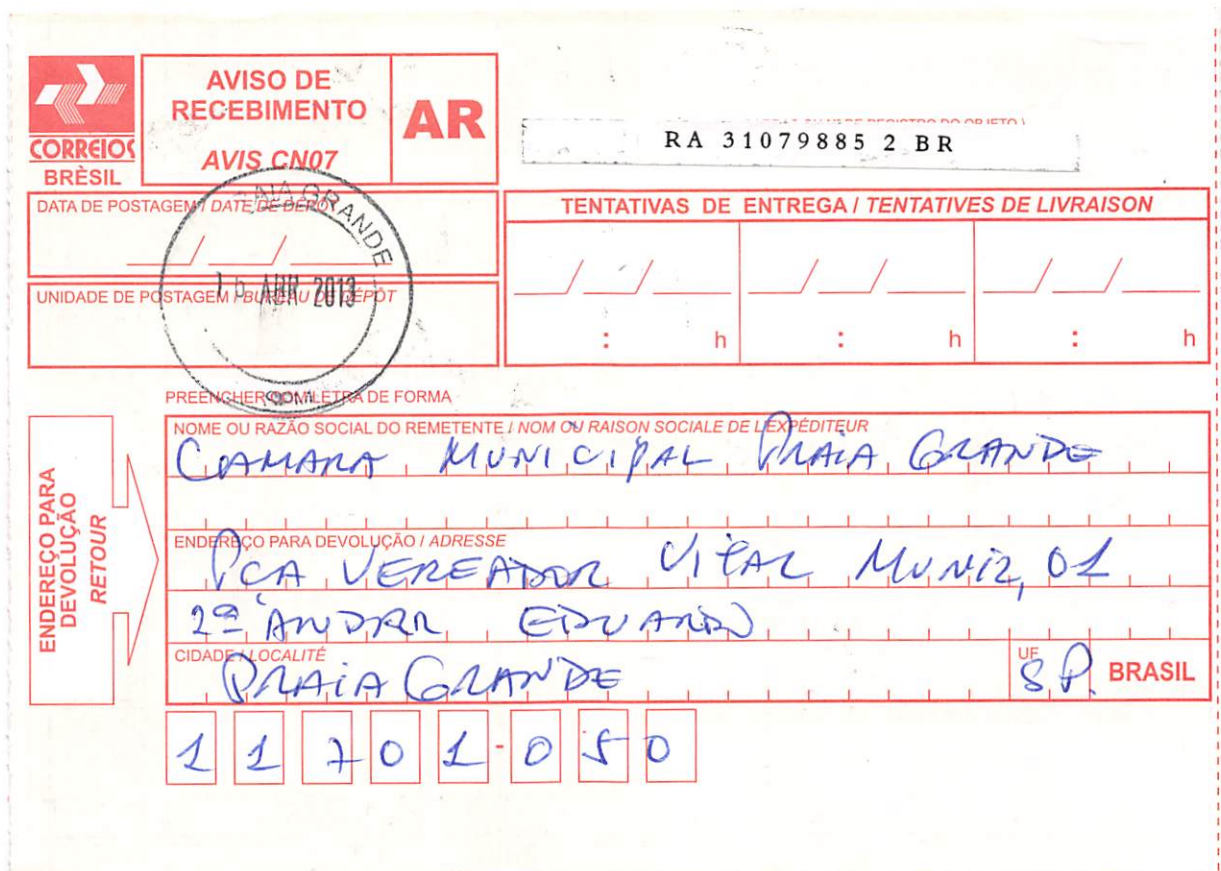 CORREIOS
BRÈSIL
AVISO DE
RECEBIMENTO
AVIS CN07
AR
RA 31079885 2 BR
DATA DE POSTAGEM / DATE DE DÉPÔT
UNIDADE DE POSTAGEM / BUREAU DE DÉPÔT
PRAIA GRANDE
16 ABR 2013
TENTATIVAS DE ENTREGA / TENTATIVES DE LIVRAISON
: h : h : h
PREENCHER COM LETRA DE FORMA
ENDEREÇO PARA
DEVOLUÇÃO
RETOUR
NOME OU RAZÃO SOCIAL DO REMETENTE / NOM OU RAISON SOCIALE DE L'EXPÉDITEUR
CAMARA MUNICIPAL PRAIA GRANDE
ENDEREÇO PARA DEVOLUÇÃO / ADRESSE
PCA VEREADOR VITAL MUNIZ, 01
2º ANDAR EDUARDO
CIDADE / LOCALITÉ
PRAIA GRANDE
UF
S.P. BRASIL
11701-050